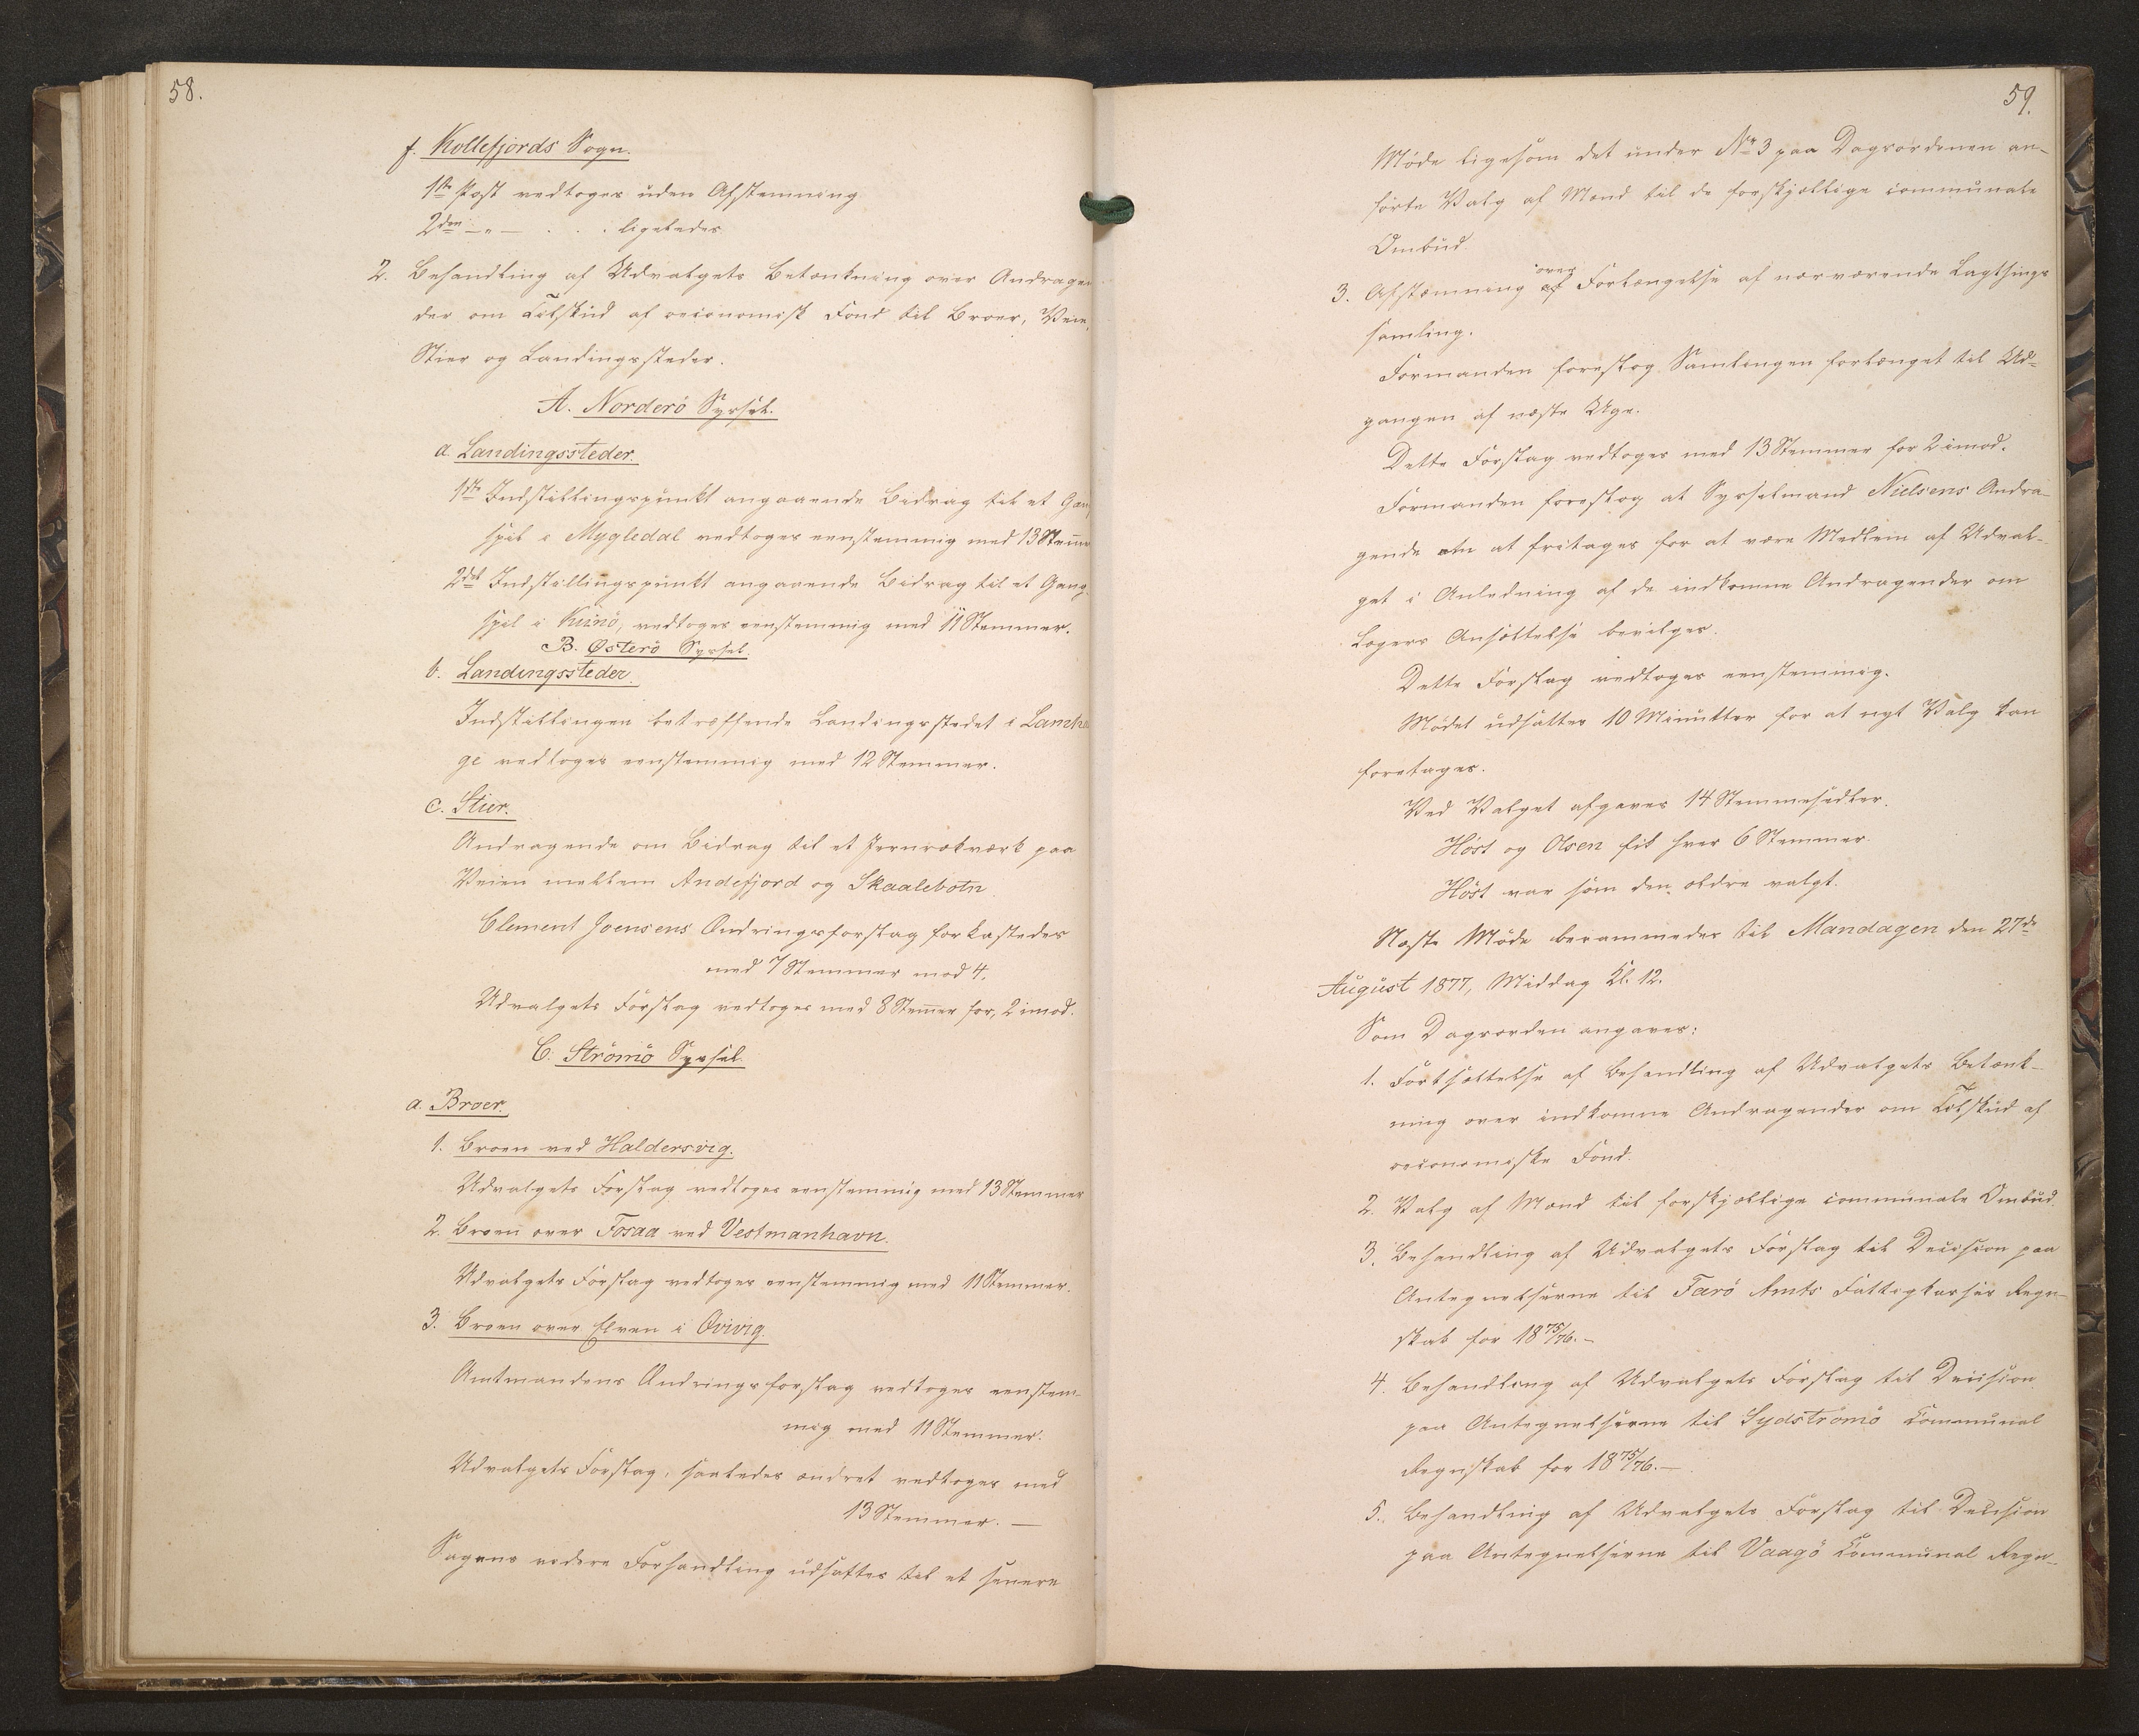 58.
f. Kollefjords Sogn.
1ste Post vedtoges uden Afstemning
2den — " — . . . ligeledes
2. Behandling af Udvalgets Betænkning over Andragen
der om Tilskud af oeconomisk Fond til Broer, Veie,
Stier og Landingssteder.
A. Norderö Syssel.
a. Landingssteder.
1ste Indstillingspunkt angaaende Bidrag til et Gang
spil i Mygledal vedtoges eenstemmig med 13 Stemmer
2det Indstillingspunkt angaaende Bidrag til et Gang
spil i Kunö, vedtoges eenstemmig med 11 Stemmer.
B. Østerö Syssel
b. Landingssteder.
Indstillingen betræffende Landingsstedet i Lamha
ge vedtoges eenstemmig med 12 Stemmer.
c. Stier.
Andragende om Bidrag til et Jernrækværk paa
Veien mellem Andefjord og Skaalebotn
Clement Joensens Ændringsforslag forkastedes
med 7 Stemmer mod 4.
Udvalgets Forslag vedtoges med 8 Stemmer for, 2 imod.
C. Strömö Syssel
a. Broer.
1. Broen ved Haldersvig.
Udvalgets Forslag vedtoges eenstemmig med 13 Stemmer
2. Broen over Fosaa ved Vestmanhavn.
Udvalgets Forslag vedtoges eenstemmig med 11 Stemmer.
3. Broen over Elven i Qvivig.
Amtmandens Ændringsforslag vedtoges eenstem-
mig med 11 Stemmer.
Udvalgets Forslag, saaledes ændret vedtoges med
13 Stemmer. —
Sagens videre Forhandling udsattes til et senere
59.
Möde ligesom det under No 3 paa Dagsordenen an-
førte Valg af Mænd til de forskjællige communale
Ombud.
3. Afstemning over Forlængelse af nærværende Lagthings
samling.
Formanden foreslog Samlingen forlænget til Ud-
gangen af næste Uge.
Dette Forslag vedtoges med 13 Stemmer for 2 imod.
Formanden foreslog at Sysselmand Nielsens Andra-
gende om at fritages for at være Medlem af Udval-
get i Anledning af de indkomne Andragender om
Lægers Ansættelse bevilges.
Dette Forslag vedtoges eenstemmig.
Mödet udsattes 10 Minutter for at nyt Valg kan
foretages.
Ved Valget afgaves 14 Stemmesedler.
Höst og Olsen fik hver 6 Stemmer.
Höst var som den ældre valgt.
Næste Möde berammedes til Mandagen den 27de
August 1877, Middag Kl. 12.
Som Dagsorden angaves:
1. Fortsættelse af Behandling af Udvalgets Betænk-
ning over indkomne Andragender om Tilskud af
oeconomiske Fond.
2. Valg af Mænd til forskjællige communale Ombud.
3. Behandling af Udvalgets Forslag til Decision paa
Antegnelserne til Farö Amts Fattigkasses Regn-
skab for 1875/76. —
4. Behandling af Udvalgets Forslag til Decision
paa Antegnelserne til Sydströmö Communal
Regnskab for 1875/76. —
5. Behandling af Udvalgets Forslag til Decision
paa Antegnelserne til Vaagö Communal Regn-